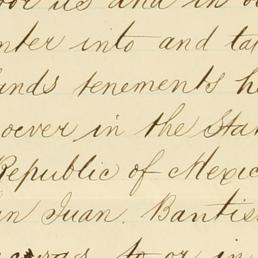 for us and in o
nter into and ta
ands tenements h
oever in the Stat
Republic of Mexic
an Juan Bautis
to or in